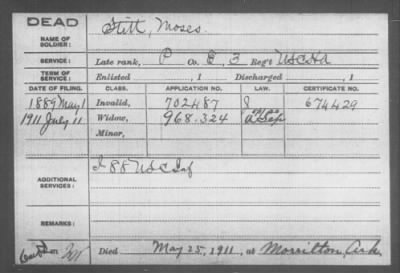 DEAD
NAME OF SOLDIER: Stitt, Moses.
SERVICE: Late rank, P Co. E, 3 Reg't U.S.C.H.A
TERM OF SERVICE: Enlisted , 1 Discharged , 1
DATE OF FILING. CLASS. APPLICATION NO. LAW. CERTIFICATE NO.
1889 May 1 Invalid, 702487 674429
1911 July 11 Widow, 968.324
Minor,
ADDITIONAL SERVICES: I 88 U.S.C. Inf
REMARKS:
Died May 25, 1911, at Morrilton, Ark.